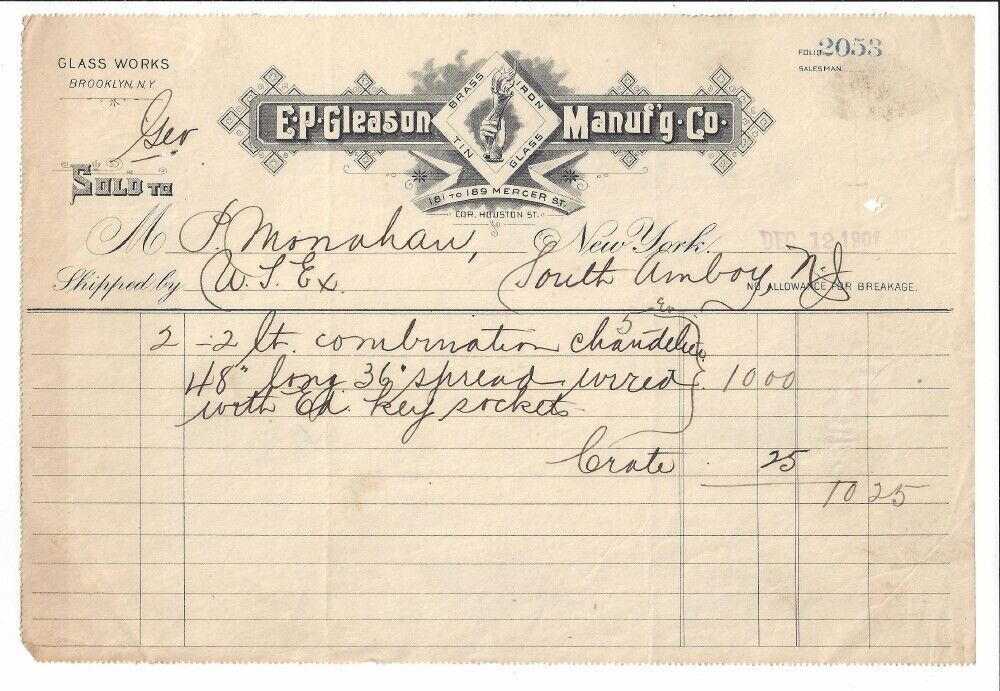 GLASS WORKS
BROOKLYN, N.Y.
FOLIO 2053
SALESMAN
E.P. Gleason Manuf'g. Co.
BRASS IRON TIN GLASS
181 TO 189 MERCER ST.
COR. HOUSTON ST.
Geo
SOLD TO
M P. Monahan,
New York, DEC 12 190
Shipped by W. S. Ex.
South Amboy, N.J
NO ALLOWANCE FOR BREAKAGE.
5 Ea
2 - 2 lt. combination chandelier
48" long 36" spread wired 10 00
with Ed. key sockets
Crate 25
10 25